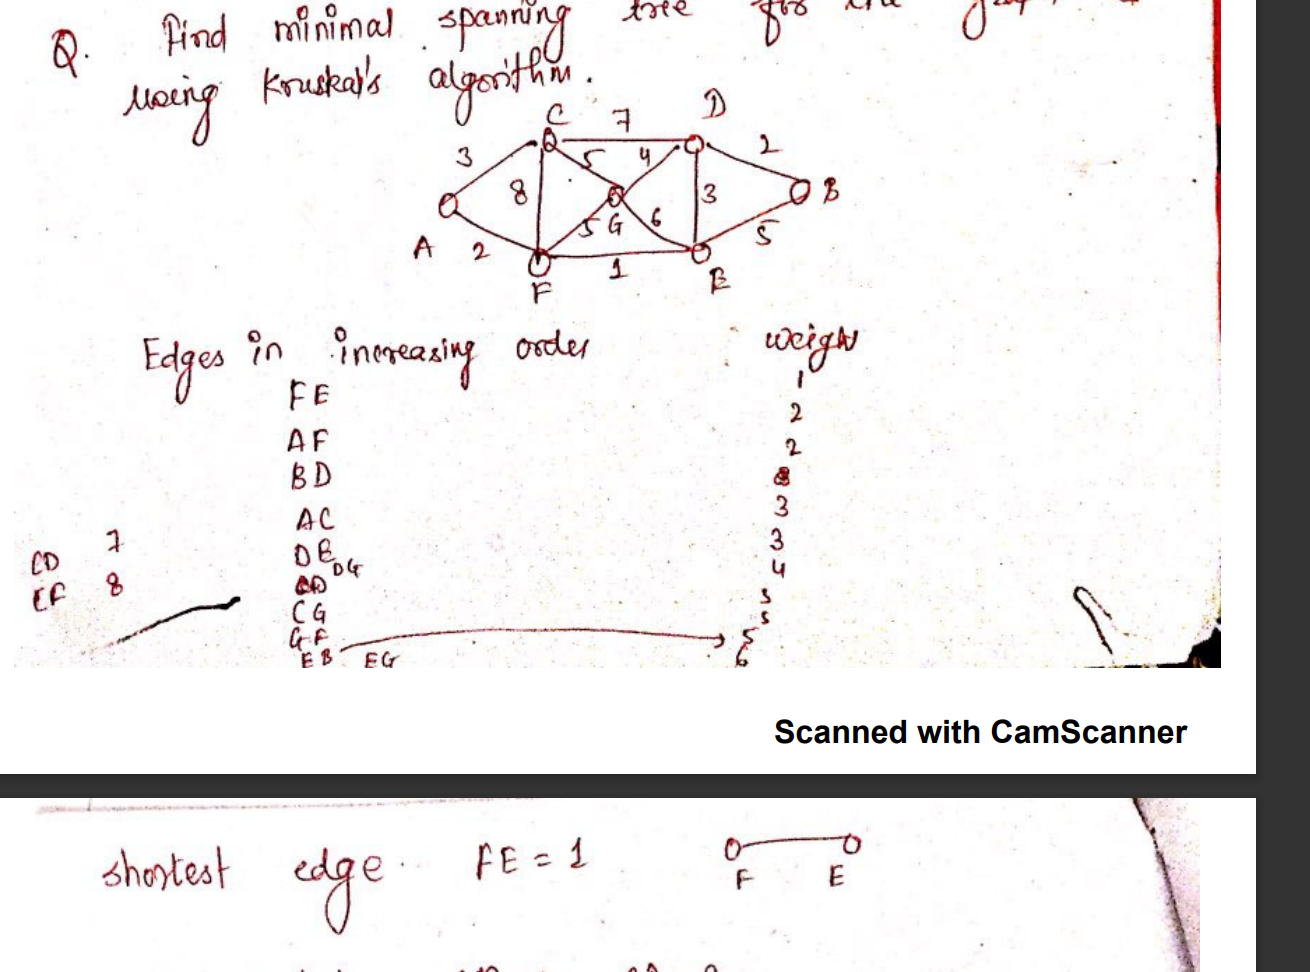 Q. Find minimal spanning tree for the
using Kruskal's algorithm.
C 7 D
3 5 4 2
8 3 B
5 G 6 5
A 2
1
F E
Edges in increasing order weight
FE 1
AF 2
BD 2
AC 3
DE 3
DG 4
CD 7
CF 8
CG 5
GF 5
EB 5
EG 6
Scanned with CamScanner
shortest edge FE = 1
F E